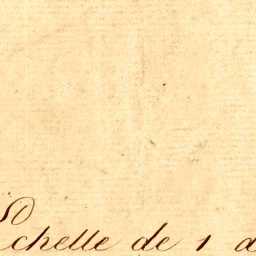 Echelle de 1 à